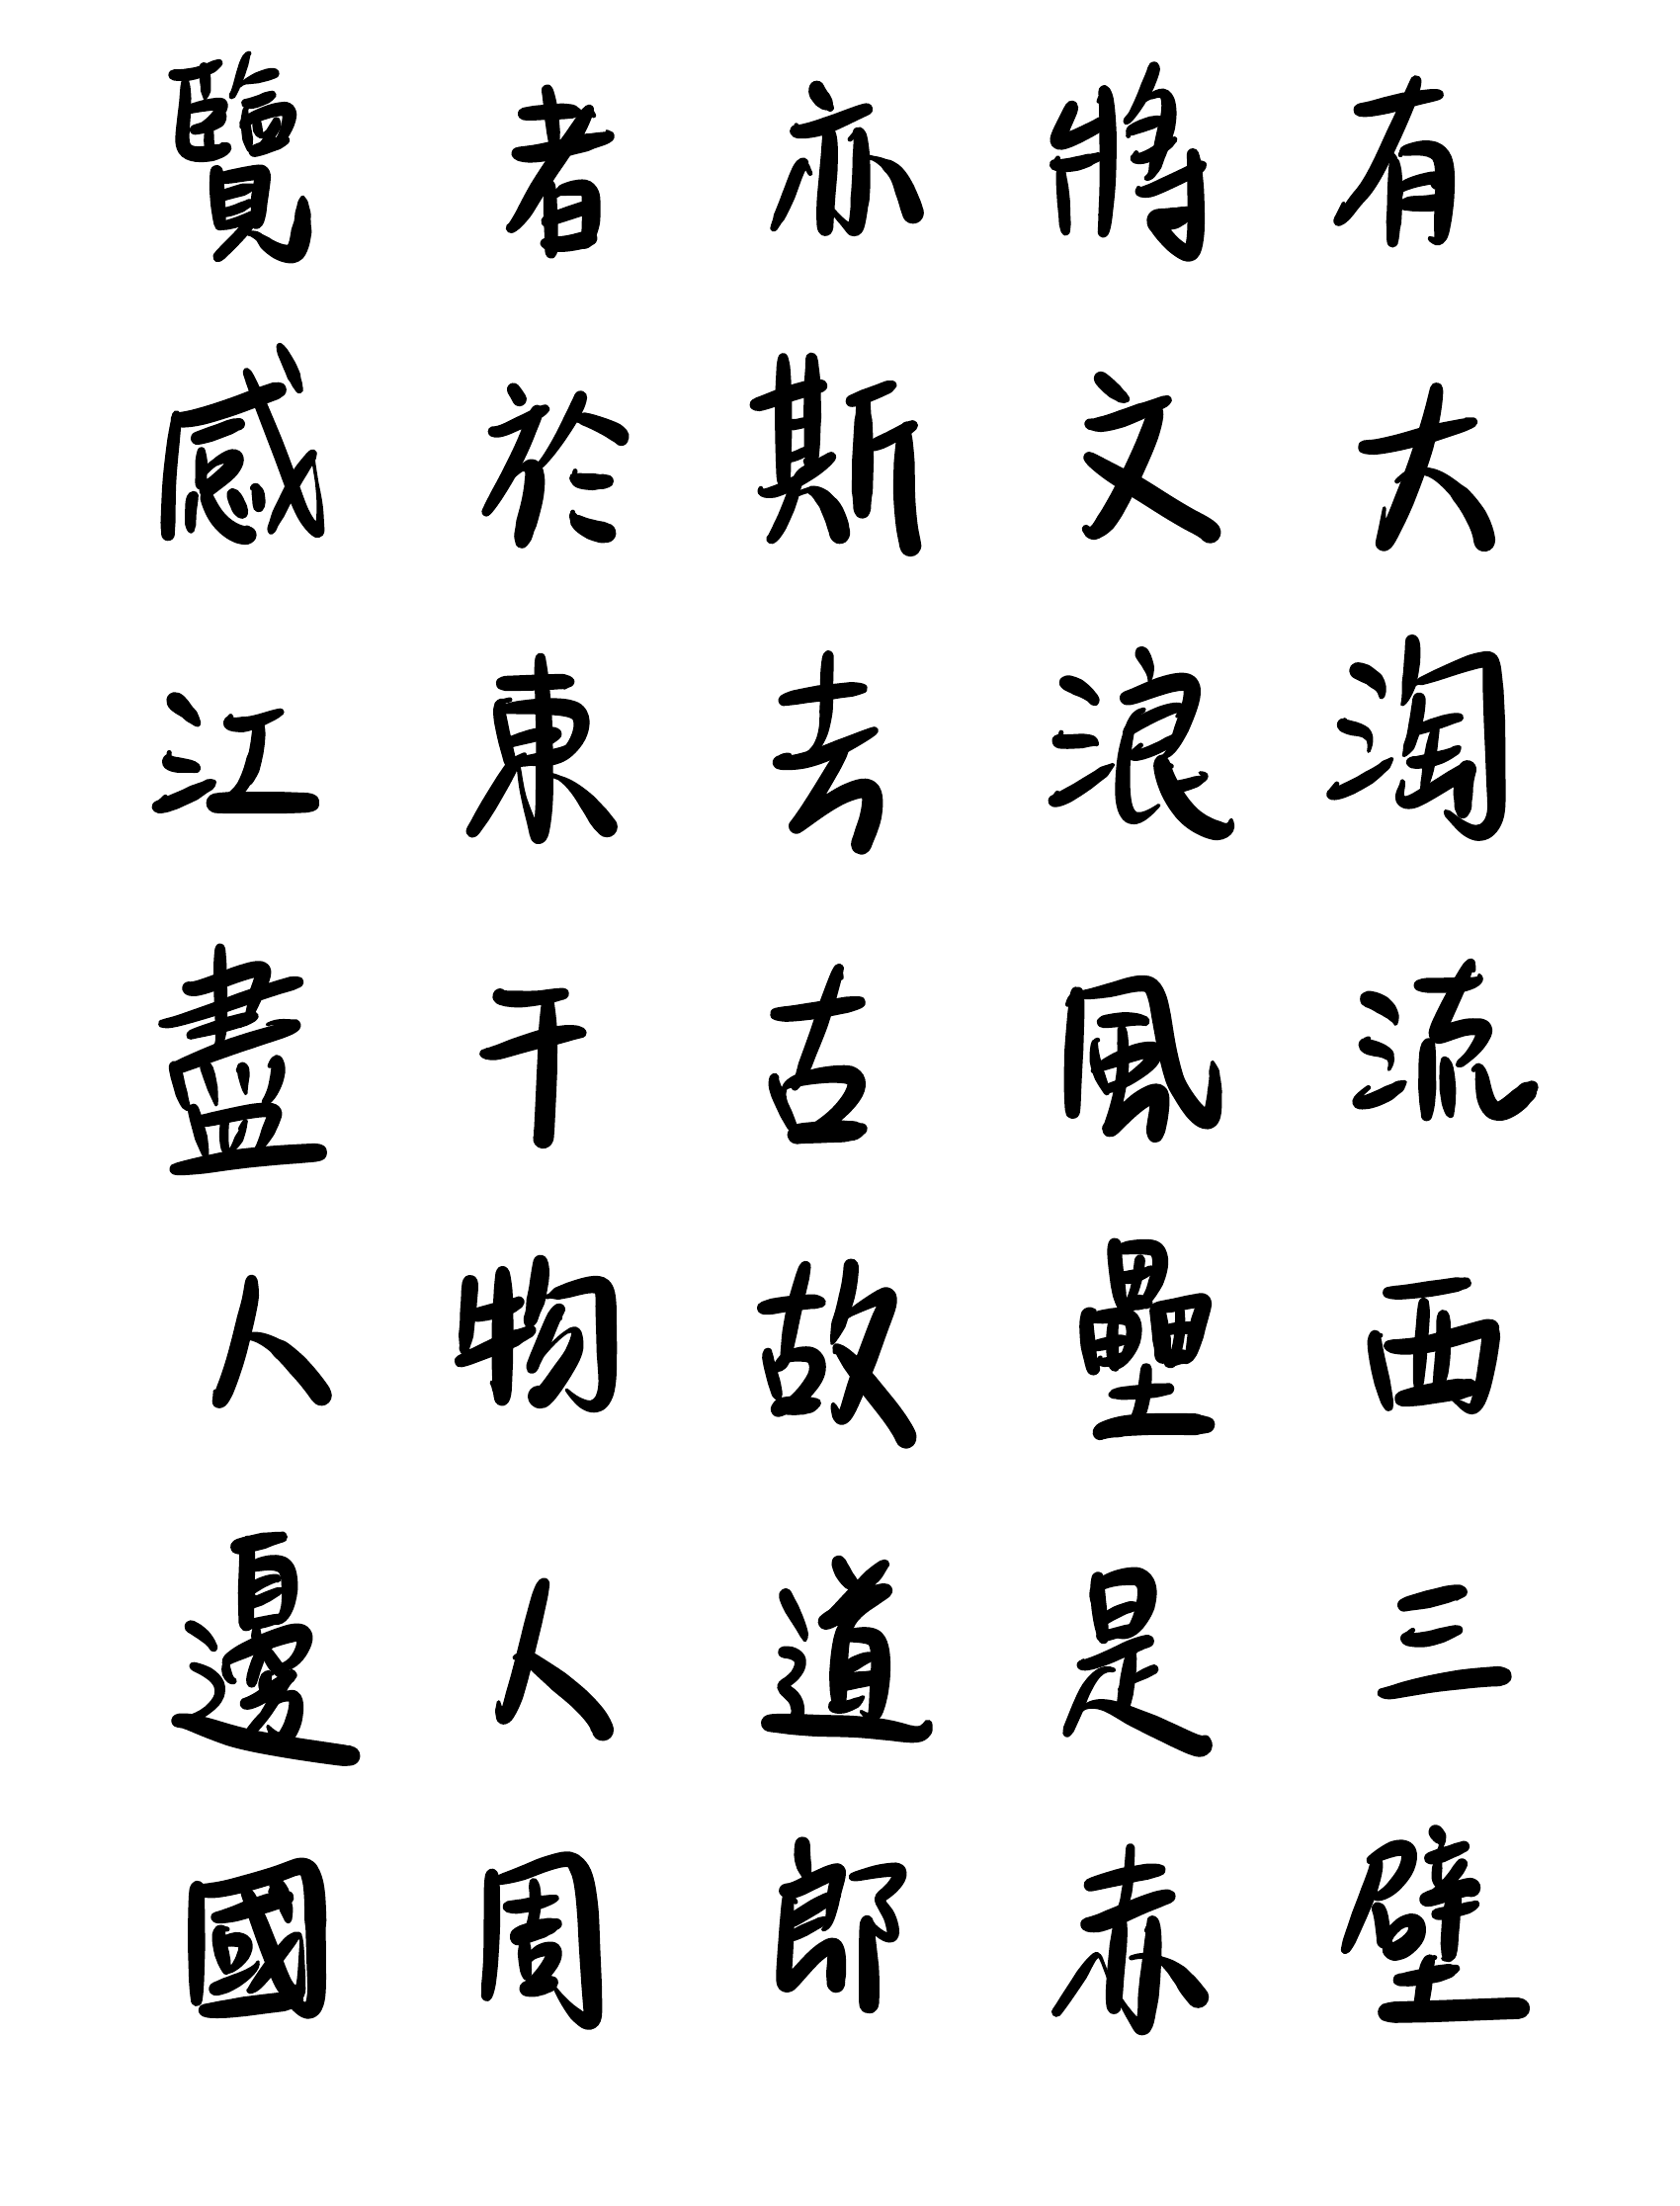 覽者亦將有
感於斯文大
江東去浪淘
盡千古風流
人物故壘西
邊人道是三
國周郎赤壁